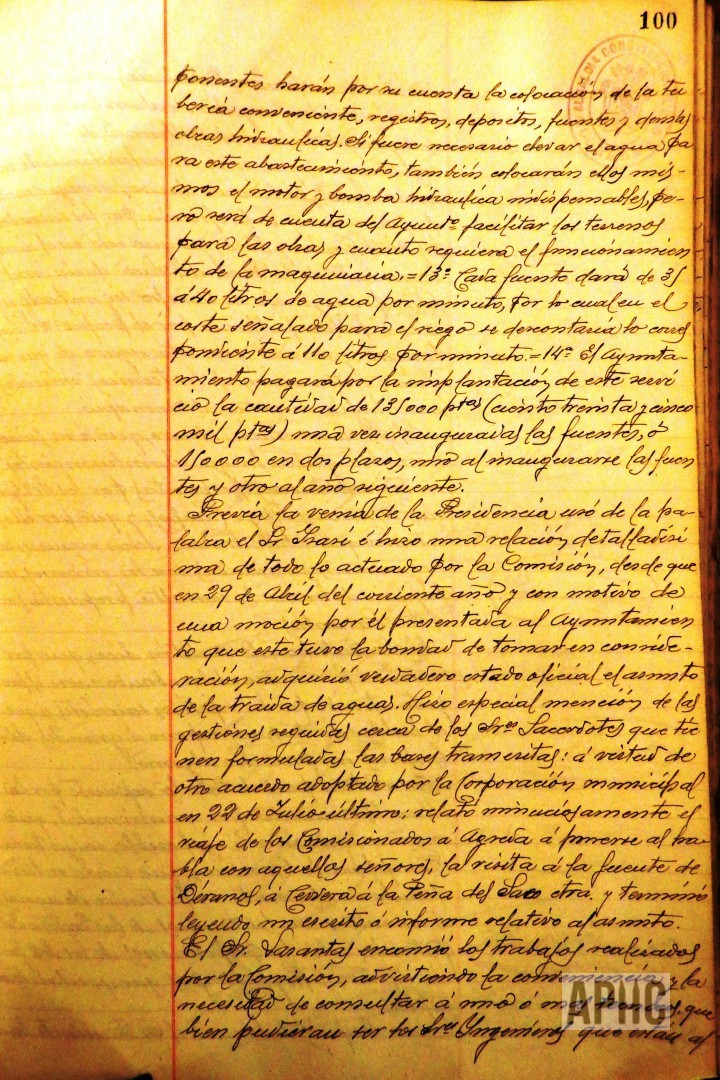 100
ponentes harán por su cuenta la colocación de la tu
bería conveniente, registros, depositos, fuentes y demás
obras hidraulicas. Si fuere necesario elevar el agua pa
ra este abastecimiento, también colocarán ellos mis-
mos el motor y bomba hidraulica indispensables, pe-
ro será de cuenta del Ayuntº facilitar los terrenos
para las obras y cuanto requiera el funcionamien
to de la maquinaria.=13ª Cada fuente dará de 35
á 40 litros de agua por minuto, por lo cual en el
coste señalado para el riego se descontaría lo corres
pondiente á 110 litros por minuto.=14ª El Ayunta-
miento pagará por la implantación de este servi
cio la cantidad de 135000 ptas (ciento treinta y cinco
mil ptas) una vez inauguradas las fuentes, ó
150000 en dos plazos, uno al inaugurarse las fuen
tes y otro al año siguiente.
Previa la venia de la Presidencia usó de la pa-
labra el Sr. é hizo una relación detalladisi
ma de todo lo actuado por la Comisión, desde que
en 29 de Abril del corriente año y con motivo de
una moción por él presentada al Ayuntamien
to que este tuvo la bondad de tomar en conside-
ración, adquirió verdadero estado oficial el asunto
de la traida de aguas. Hizo especial mención de las
gestiones seguidas cerca de los Sres Sacerdotes que tie
nen formuladas las bases transcritas: á virtud de
otro acuerdo adoptado por la Corporación municipal
en 22 de Julio último: relató minuciosamente el
viaje de los Comisionados á Agreda á ponerse al ha-
bla con aquellos señores, la visita á la fuente de
á Cervera á la Peña del Saco etra. y terminó
leyendo un escrito ó informe relativo al asunto.
El Sr. encomió los trabajos realizados
por la Comisión, advirtiendo la conveniencia y la
necesidad de consultar á uno ó mas que
bien pudieran ser los Sres Ingenieros que están al
APHC